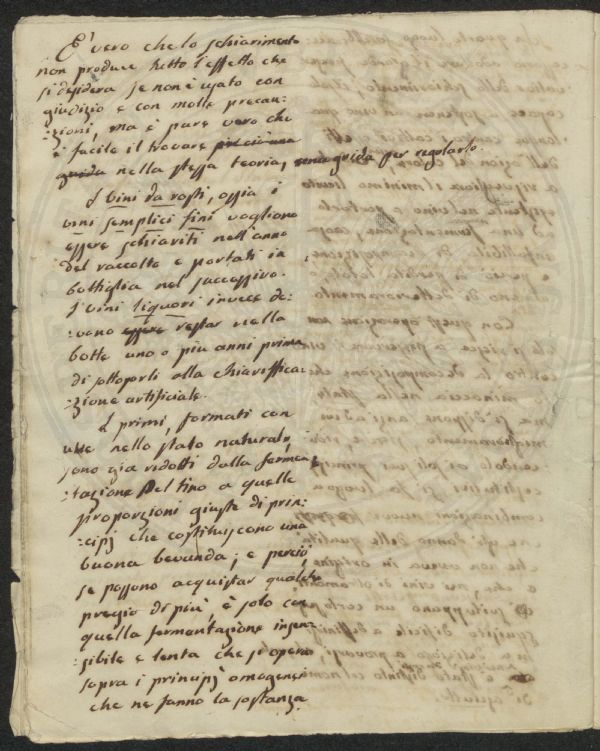 E' vero che lo schiarimento
non produce tutto l'effetto che
si desidera se non è usato con
giudizio e con molte precau:
:zioni, ma è pure vero che
è facile il trovare
guida nella stessa teoria, una guida per regolarlo.
I vini da rosti, ossia i
vini semplici fini vogliono
essere schiariti nell'anno
del raccolto e portati in
bottiglia nel successivo.
I vini liquori invece de:
:vono essere restar nella
botte uno o più anni prima
di sottoporli alla chiariffica:
:zione artificiale.
I primi, formati con
uve nello stato naturale,
sono già ridotti dalla fermen:
:tazione del tino a quelle
proporzioni giuste di prin:
:cipj che costituiscono una
buona bevanda; e perciò,
se possono acquistar qualche
pregio di più, è solo con
quella fermentazione insen:
sibile e lenta che si opera
sopra i principj omogenei
che ne fanno la sostanza